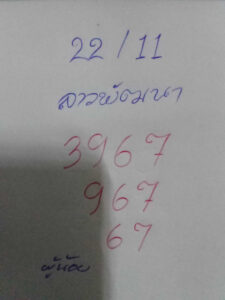 22/11
ลาวพัฒนา
3967
967
67
ผู้น้อย